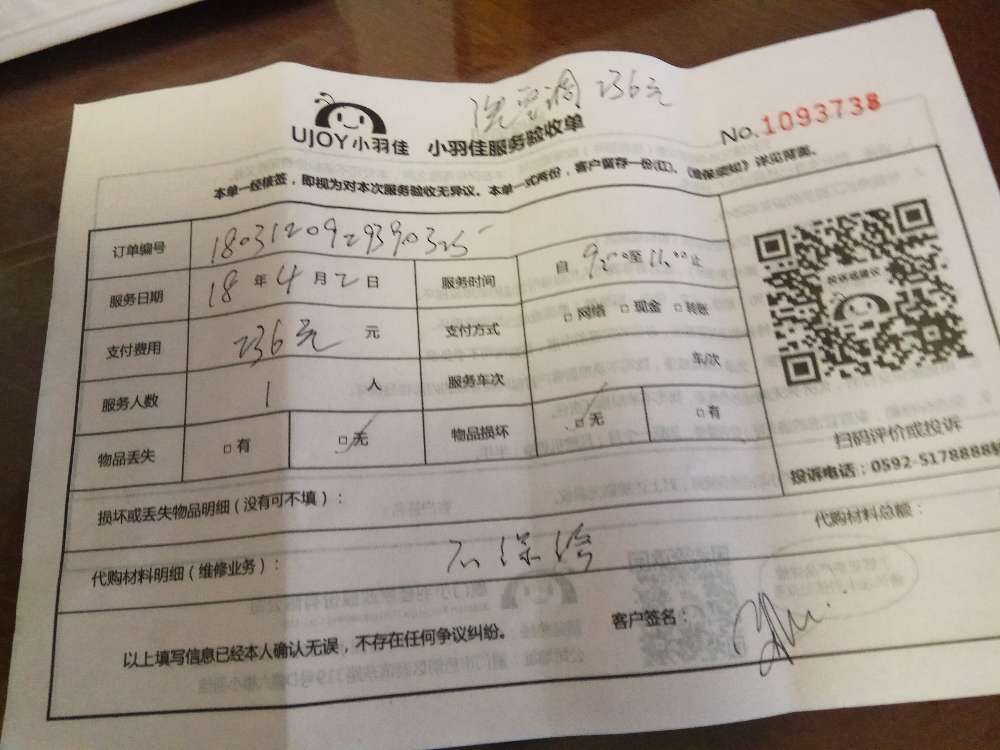 洗空调 236元
UJOY小羽佳 小羽佳服务验收单 No.1093738
本单一经核签，即视为对本次服务验收无异议。本单一式两份，客户留存一份(红)。《增保须知》详见背面。
订单编号
服务日期 18 年 4 月 2 日 服务时间 自 9:00 至 11:00 止
支付费用 236元 元 支付方式 □网络 □现金 □转账
服务人数 1 人 服务车次 车/次
物品丢失 □有 □无 物品损坏 □无 □有
扫码评价或投诉
投诉电话：0592-5178888转
损坏或丢失物品明细（没有可不填）：
代购材料总额：
代购材料明细（维修业务）：
客户签名：
以上填写信息已经本人确认无误，不存在任何争议纠纷。